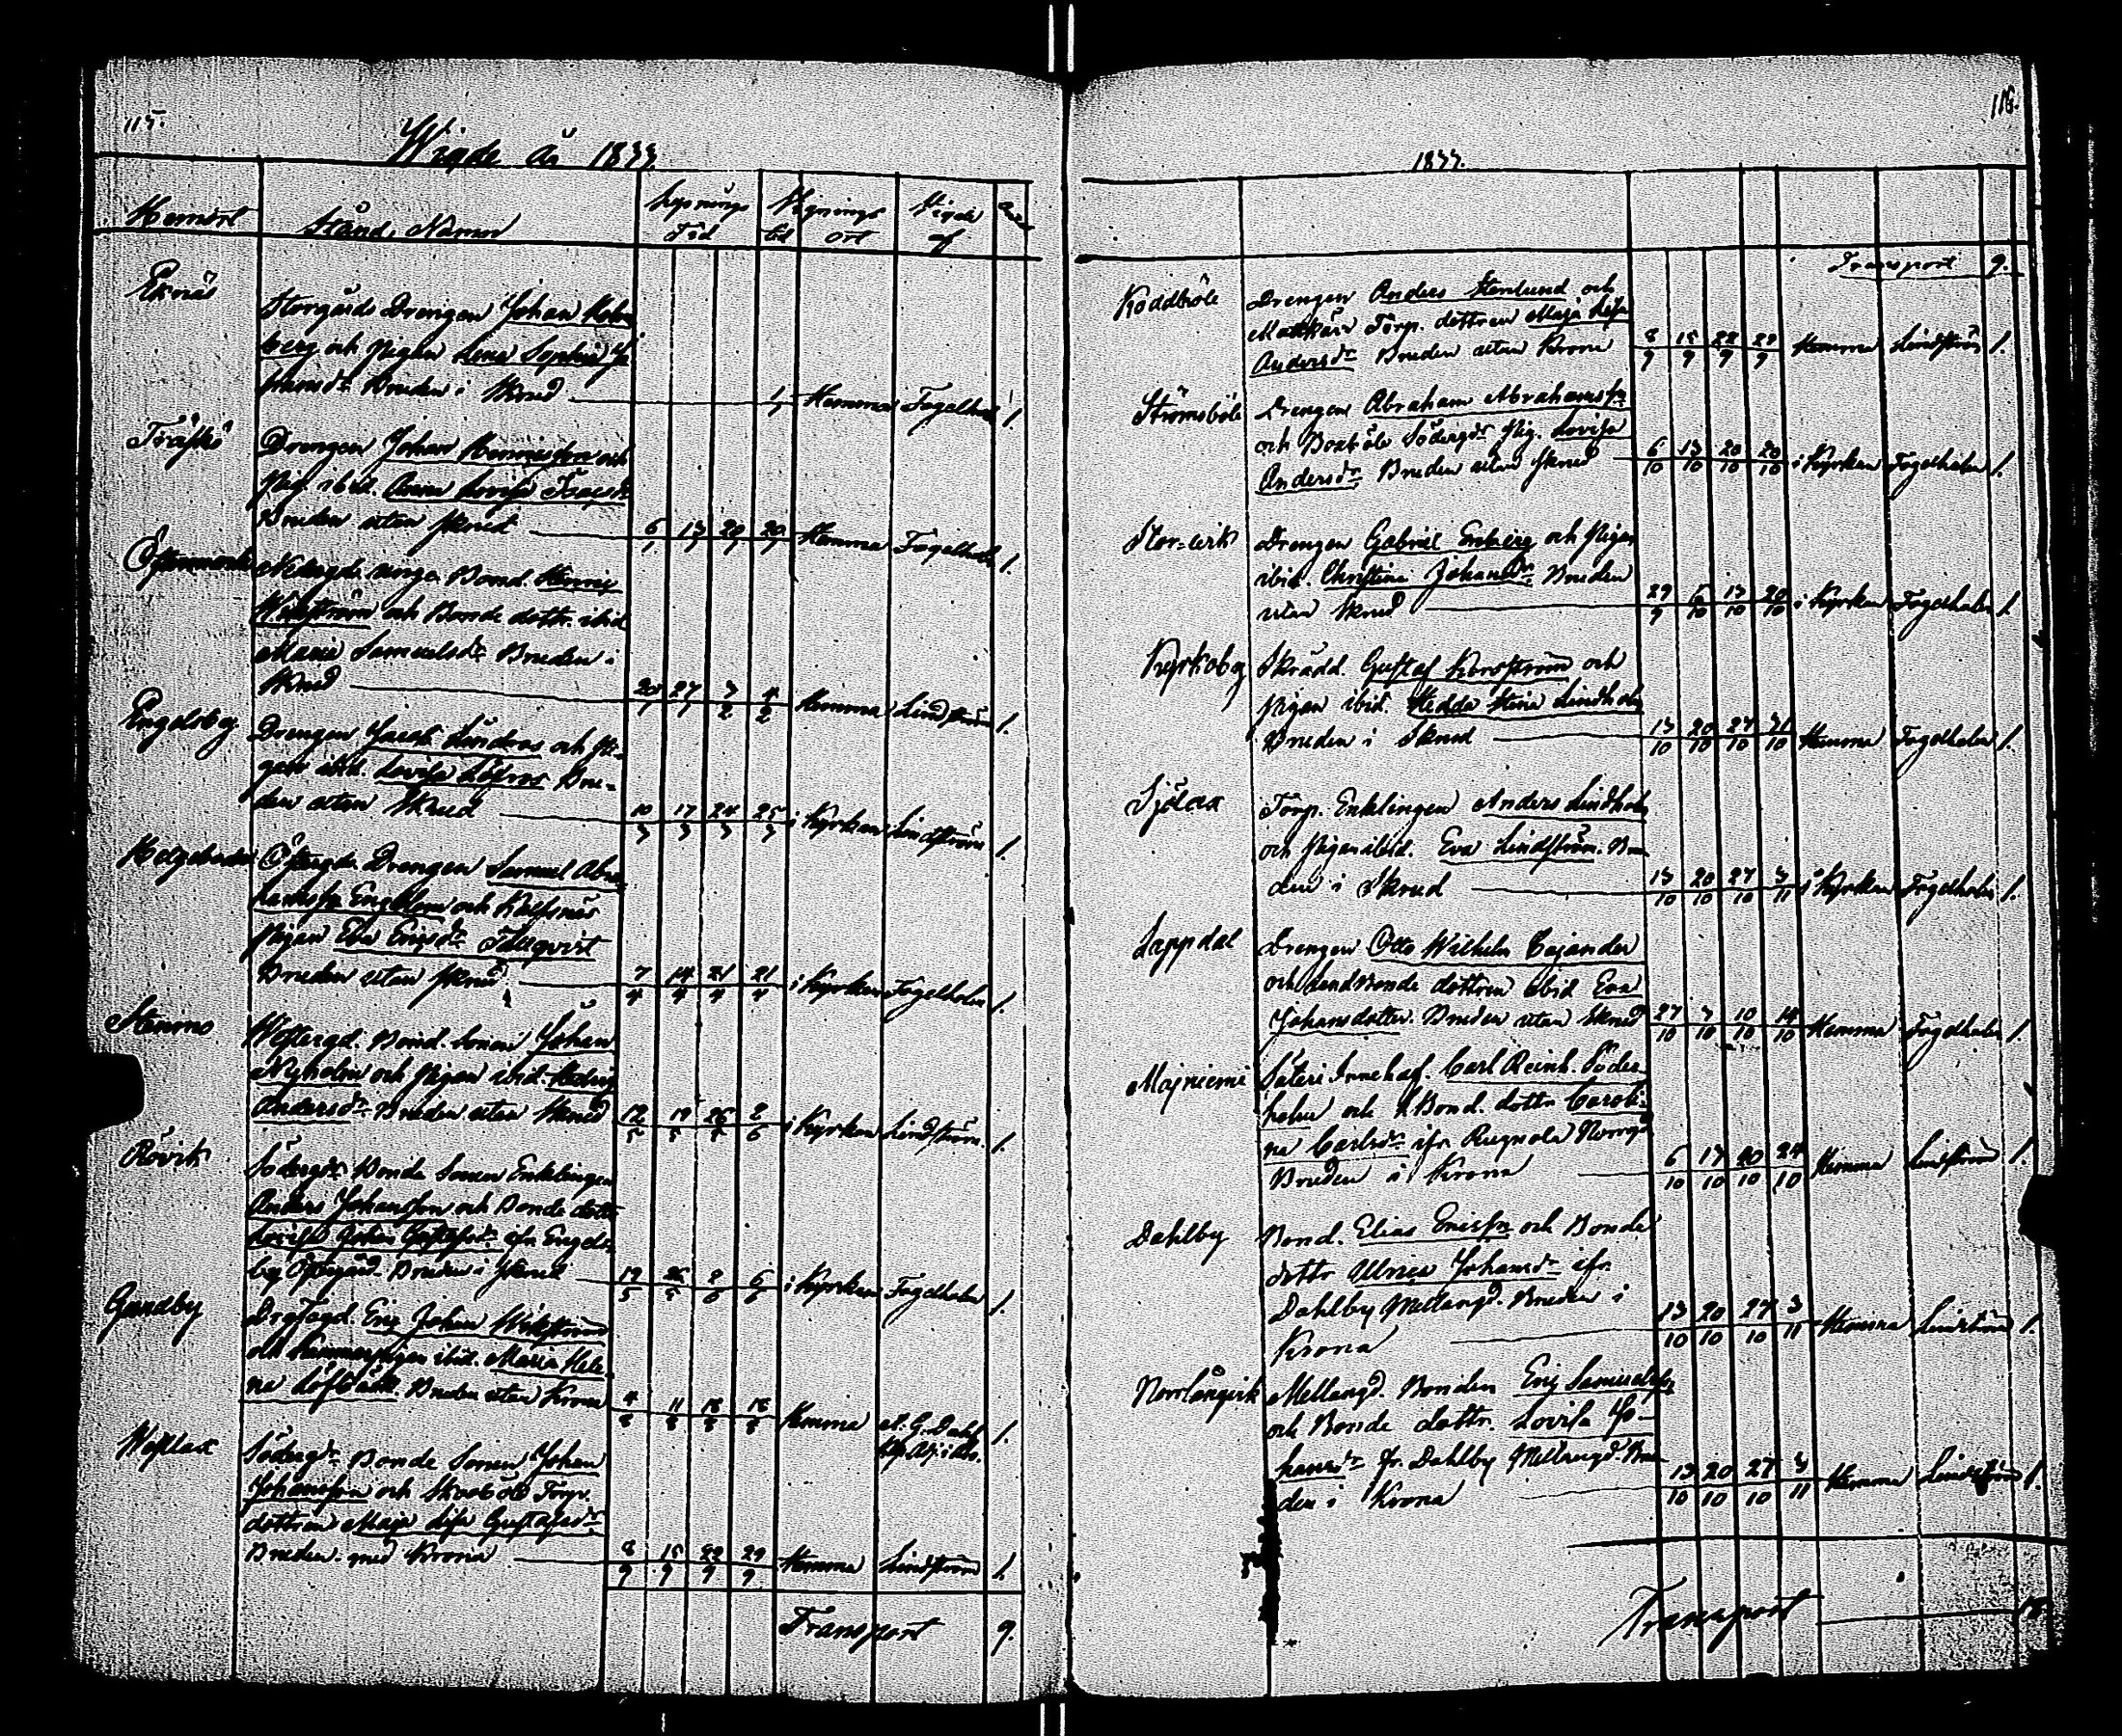 115.
Wigde År 1833.
Hemort
Stånd, Namn
Lysnings Tid
Wignings tid ort
Wigde af
Eknäs
Storgårds Drengen Johan Holm
berg och Pigan Lena Sophia Jo
hansdr. Bruden i Skrud 1/1 Hemma Fogelholm 1.
Träskö
Drengen Johan Henricsson och
Pig. ibid. Anna Lovisa Isacsdr
Bruden utan skrud 6/1 13/1 20/1 20/1 Hemma Fogelholm 1.
Östanmark
unge Bond. Henric
Wikström och Bonde dottr. ibid
Maria Samuelsdr. Bruden i
Skrud 20/1 27/1 3/2 4/2 Hemma Lindström 1.
Engelsby
Drengen Jacob Lindros och Pi-
gan ibid. Lovisa Löfros Bru-
den utan Skrud 10/3 17/3 24/3 25/3 i Kyrkan Lindström 1.
Helgeboda
Östergds Drengen Samuel Abra
hamsson Engblom och Kalfsnäs
Pigan Eva Ericsdr. Tallqvist
Bruden utan skrud 7/4 14/4 21/4 21/4 i Kyrkan Fogelholm 1.
Stennäs
Westergd. Bond. Sonen Johan
Nyholm och Pigan ibid. Hedvig
Andersdr. Bruden utan Skrud 12/5 19/5 26/5 2/6 i Kyrkan Lindström. 1.
Rövik
Södergds Bonde Sonen Enklingen
Anders Johansson och Bonde dottr
Lovisa Johan Gustafsdr. ifr. Engels
by Öfvergård. Bruden i skrud 19/5 26/5 2/6 6/6 i Kyrkan Fogelholm 1.
Gundby
Eric Johan Wikström
och Kammarpigan ibid. Maria Hele
na Löfbäck. Bruden utan Krona 4/8 11/8 18/8 18/8 Hemma G. Dahl 1.
Westlax
Södergds. Bonde Sonen Johan
Johansson och Skoböle Torp.
dottren Maja Lisa Gustafsdr
Bruden med Krona 8/9 15/9 22/9 29/9 Hemma Lindström 1.
Transport 9.
116.
1833.
Transport 9.
Koddböle
Drengen Anders Stenlund och
Mattkärr Torp. dottren Maja Lisa
Andersdr Bruden utan Krona 8/9 15/9 22/9 29/9 Hemma Lindström 1.
Strömsböle
Drengen Abraham Abrahamsson
och Boxböle Södergds Pig. Lovisa
Andersdr. Bruden utan skrud 6/10 13/10 20/10 20/10 i Kyrkan Fogelholm 1.
Stor-wik
Drengen Gabriel Enberg och Pigan
ibid. Christina Johansdr. Bruden
utan Skrud 29/9 6/10 13/10 20/10 i Kyrkan Fogelholm 1.
Kyrkoby
Skrädd. Gustaf Korsström och
Pigan ibid. Hedda Stina Lindholm
Bruden i Skrud 13/10 20/10 27/10 31/10 Hemma Fogelholm 1.
Sjölax
Torp. Enklingen Anders Lindholm
och Pigan ibid. Eva Lindström. Bru
den i Skrud 13/10 20/10 27/10 3/11 i Kyrkan Fogelholm 1.
Lappdal
Drengen Otto Wilhelm Cajander
och Landbonde dottren ibid Eva
Johansdotter. Bruden utan Skrud 27/10 3/10 10/10 14/10 Hemma Fogelholm 1.
Majniemi
Säteri Innehaf. Carl Reinh. Söder
holm och Bond. dottr Caroli-
na Carlsdr. ifr. Rugnola Norrgd
Bruden i Krona 6/10 13/10 20/10 24/10 Hemma Lindström 1.
Dahlby
Bond. Elias Ericsson och Bonde
dottr Ulrica Johansdr. ifr.
Dahlby Mellangd. Bruden i
Krona 13/10 20/10 27/10 3/11 Hemma Lindström 1.
Norrlångvik
Mellangd. Bonden Eric Samuelsson
och Bonde dottr. Lovisa Jo-
hansdr fr. Dahlby Mellangd. Bru
den i Krona 13/10 20/10 27/10 3/11 Hemma Lindström 1.
Transport 18.